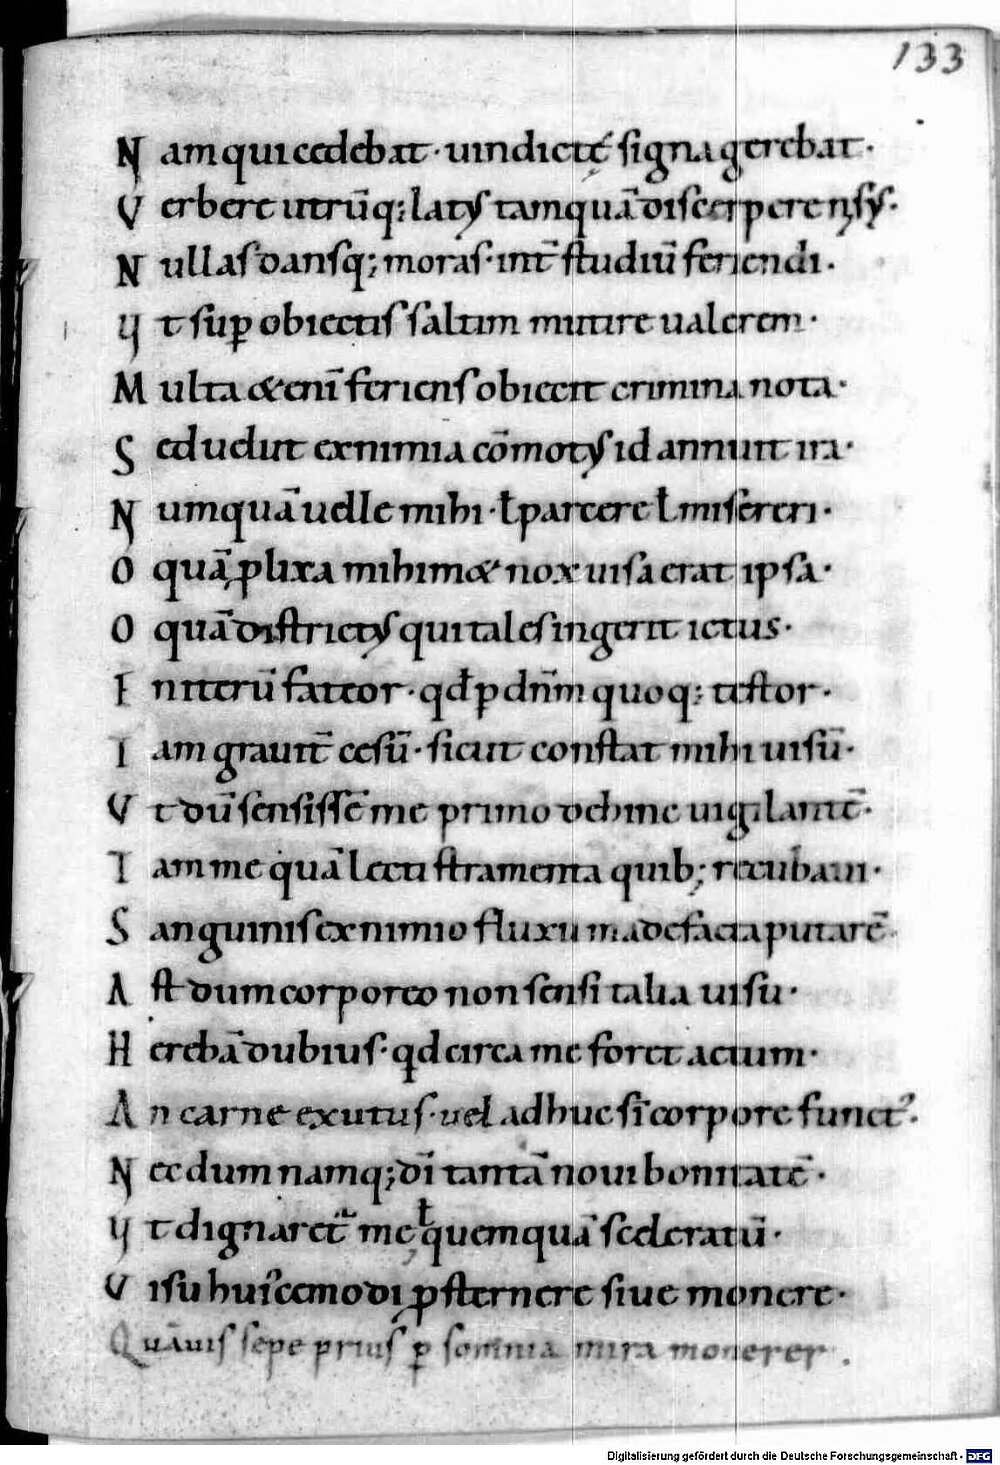 133
Nam qui cedebat · uindictę signa gerebat ·
Verbere utrūq; latꝰ tamquā discerpere nisꝰ ·
Nullas dansq; moras · int̄ studiū feriendi ·
Vt suꝑ obiectis saltim mutire ualerem ·
Multa & enī feriens obiecit crimina nota ·
Sed uelut ex nimia cōmotꝰ id annuit ira ·
Numquā uelle mihi · ł parcere ł misereri ·
O quā ꝓlixa mihimet nox uisa erat ipsa ·
O quā districtꝰ qui tales ingerit ictus ·
In iterū fateor · qđ ꝑ dn̄m quoq; testor ·
Iam grauit̄ cesū · sicut constat mihi uisū ·
Vt dū sensissē me primo dehinc uigilantē ·
Iam me quā lecti stramenta quib; recubaui ·
Sanguinis ex nimio fluxu madefacta putarē ·
Ast dum corporeo non sensi talia uisu ·
Herebā dubius · qd circa me foret actum ·
An carne exutus · uel adhuc sī corpore functꝰ ·
Necdum namq; dī tantā noui bonitatē ·
Vt dignaret᷑ me ł quemquā sceleratū ·
Visu huiꝰcemodi ꝓsternere siue monere ·
Quāuis sepe prius ꝑ somnia mira monerer .
Digitalisierung gefördert durch die Deutsche Forschungsgemeinschaft - DFG